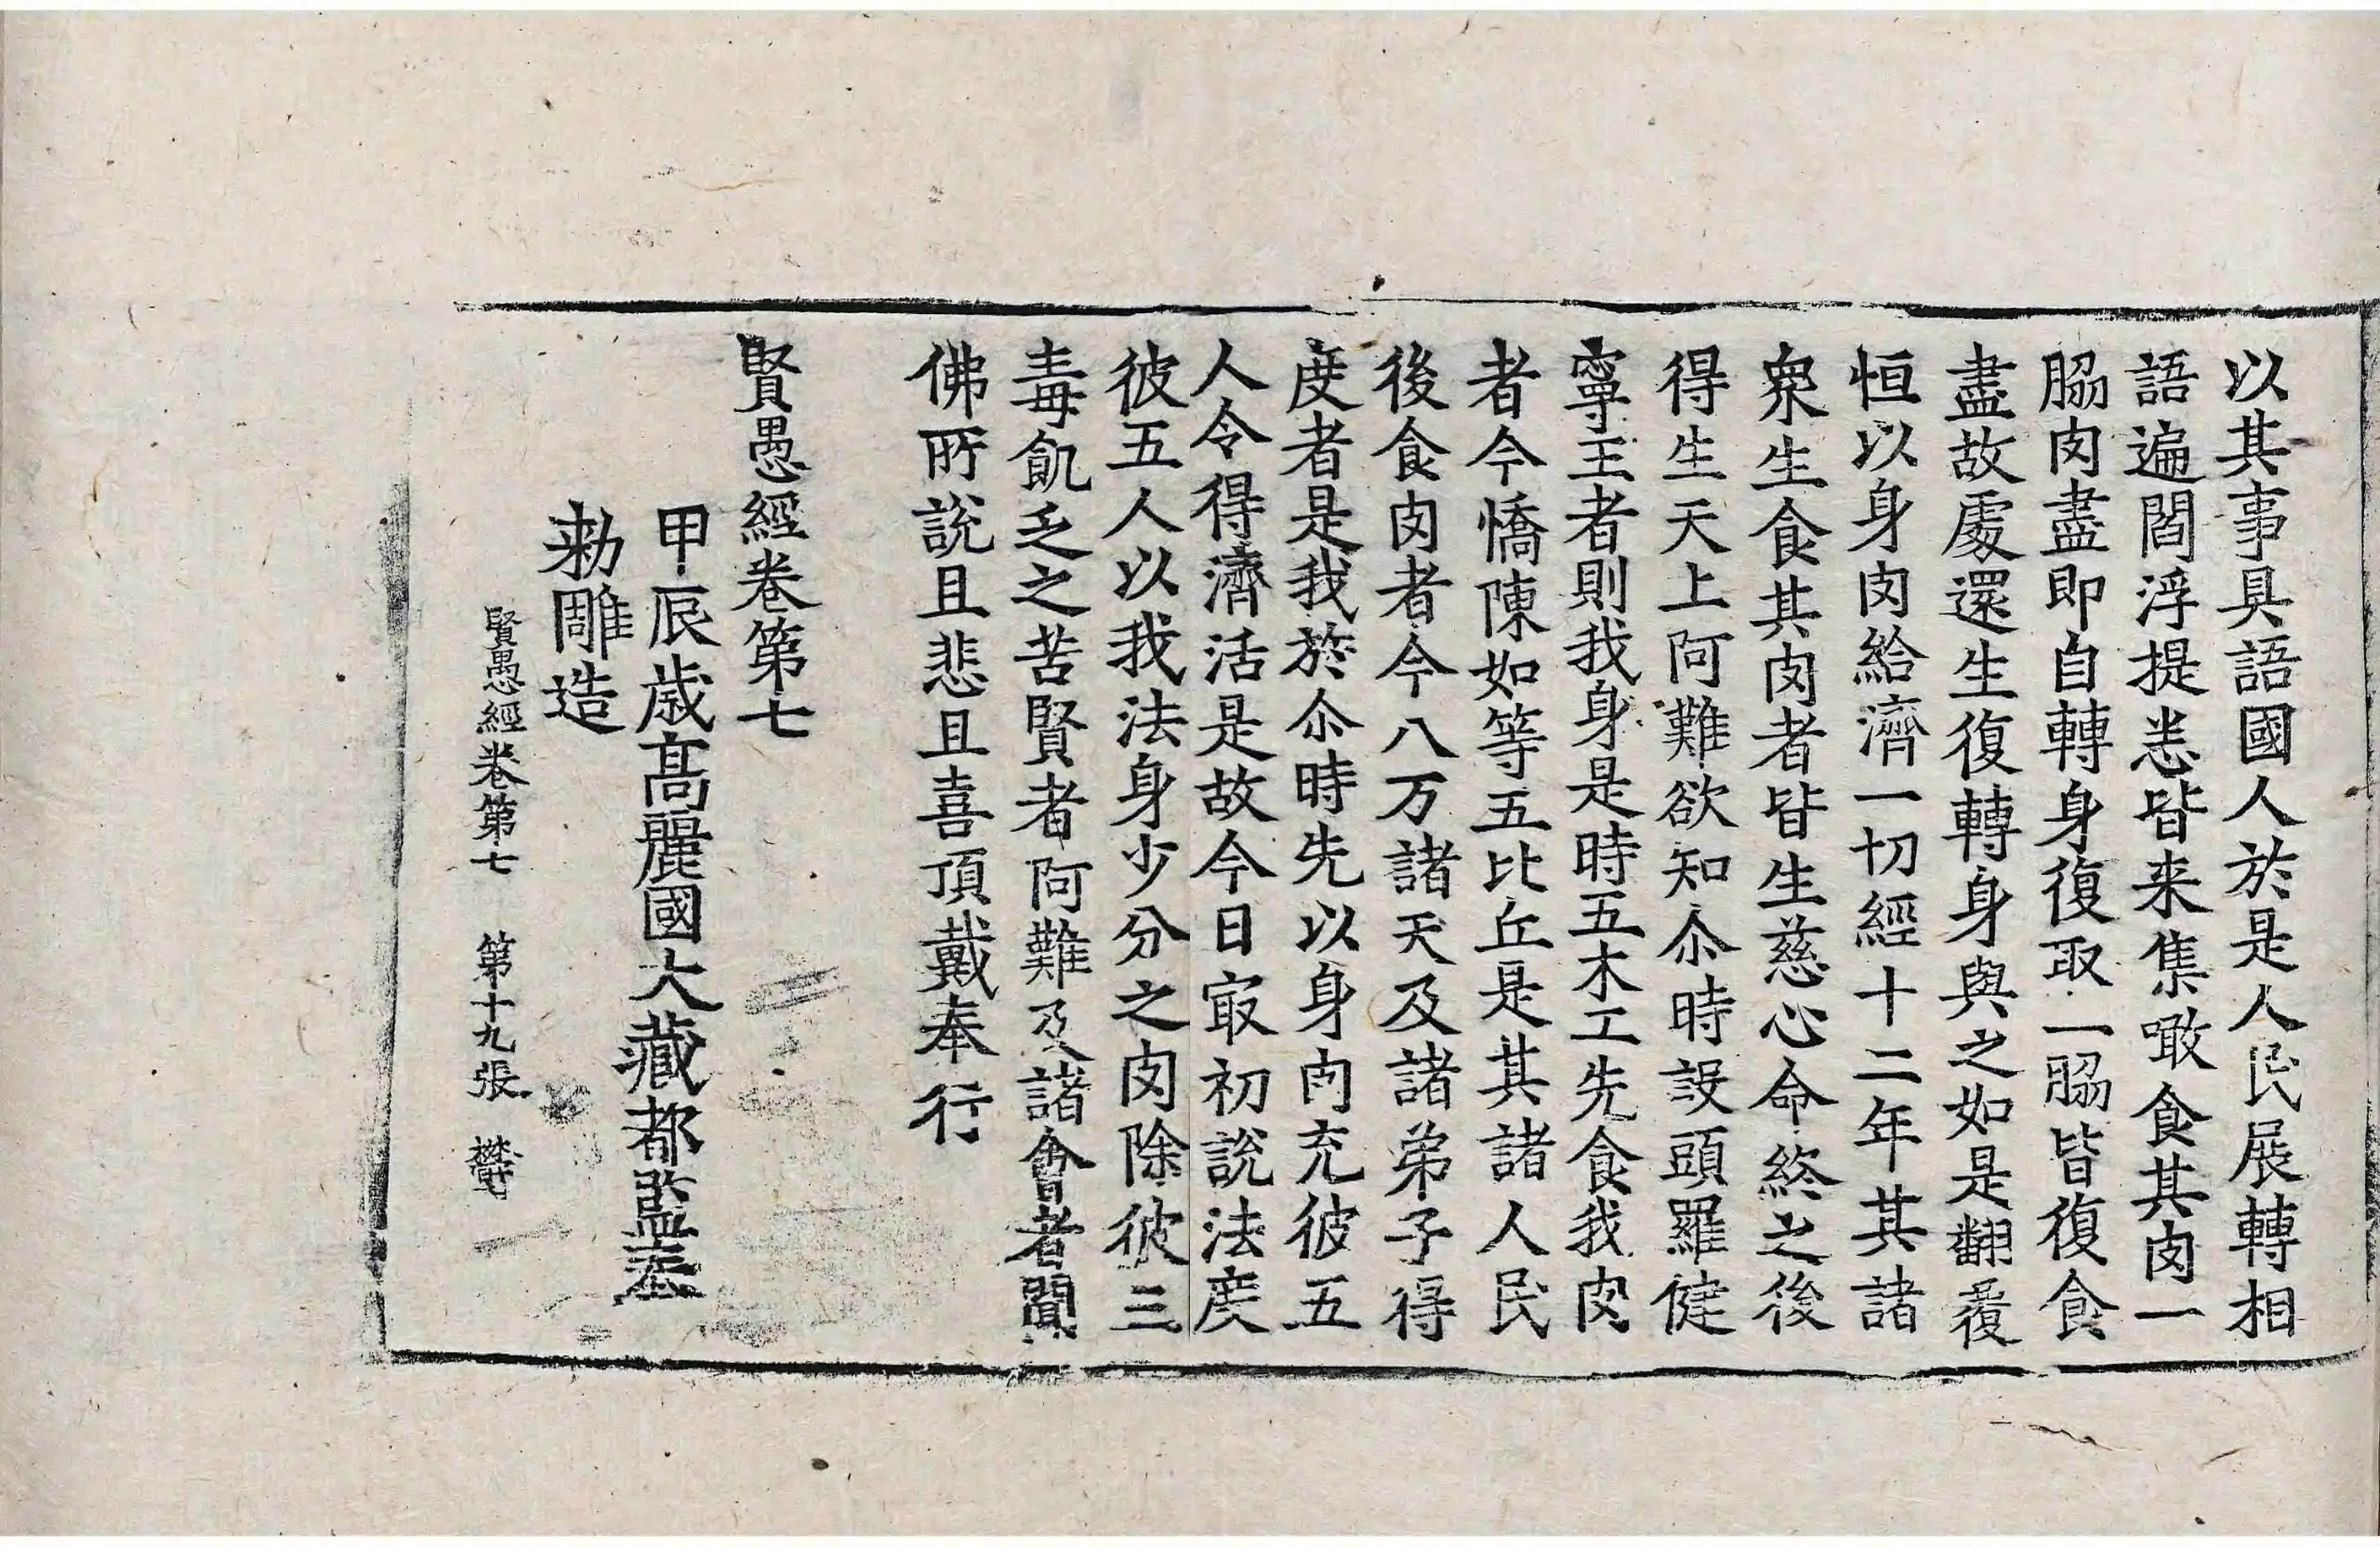 以其事具語國人於是人民展轉相
語遍閻浮提悉皆来集噉食其肉一
脇肉盡即自轉身復取一脇皆復食
盡故處還生復轉身與之如是翻覆
恒以身肉給濟一切經十二年其諸
衆生食其肉者皆生慈心命終之後
得生天上阿難欲知尒時設頭羅健
寧王者則我身是時五木工先食我肉
者今憍陳如等五比丘是其諸人民
後食肉者今八万諸天及諸弟子得
度者是我於尒時先以身肉充彼五
人令得濟活是故今日冣初說法度
彼五人以我法身少分之肉除彼三
毒飢乏之苦賢者阿難及諸會者聞
佛所說且悲且喜頂戴奉行
賢愚經卷第七
甲辰歲髙麗國大藏都監奉
勑雕造
賢愚經卷第七 第十九張 欝